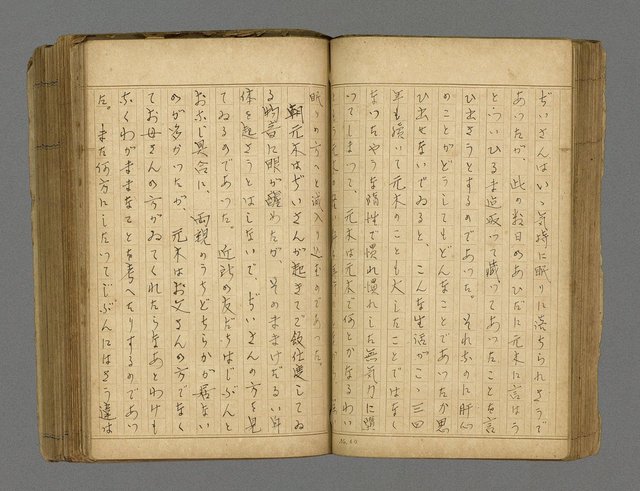 ぢいさんはいゝ気持に眠りに落ちられさうで
あつたが、此の数日のあひだに元木に言はう
と、つい、ひるま迄取つて蔵つてあつたことを言
ひ出さうとするのであつた。それなのに肝心
のことがどうしてもどんなことであつたか思
ひ出せないでゐると、こんな生活がこゝ三四
年も続いて元木のことも大したことではなく
なつたやうな惰性で慣れ慣れした無気力に
つてしまつて、元木は元木で何とかなるわい
眠りの方へと滅入り込むのであつた。
朝元木はぢいさんが起きてご飯仕度してゐ
る物音に眼が醒めたが、そのまままけだるい
体を起さうとはしないで、ぢいさんの方を見
てゐるのであつた。近所の友だちはじぶんと
おなじ具合に、両親のうちどちらかが居ない
のが多かつたが、元木はお父さんの方でなく
てお母さんの方がゐてくれたらなあとわけも
なくわがままなことを考へたりするのであつ
た。また何方にしたつてじぶんにはさう違は